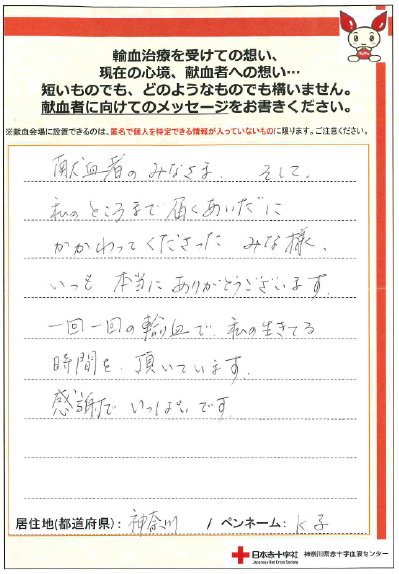 輸血治療を受けての想い、
現在の心境、献血者への想い…
短いものでも、どのようなものでも構いません。
献血者に向けてのメッセージをお書きください。
※献血会場に設置できるのは、匿名で個人を特定できる情報が入っていないものに限ります。ご注意ください。
献血者のみなさま、そして、
私のところまで届くあいだに
かかわってくださった みな様、
いつも 本当に ありがとうございます。
一回一回の輸血で、私の生きてる
時間を、頂いています。
感謝で いっぱいです。
居住地(都道府県): 神奈川 / ペンネーム: K子
日本赤十字社 神奈川県赤十字血液センター
Japanese Red Cross Society